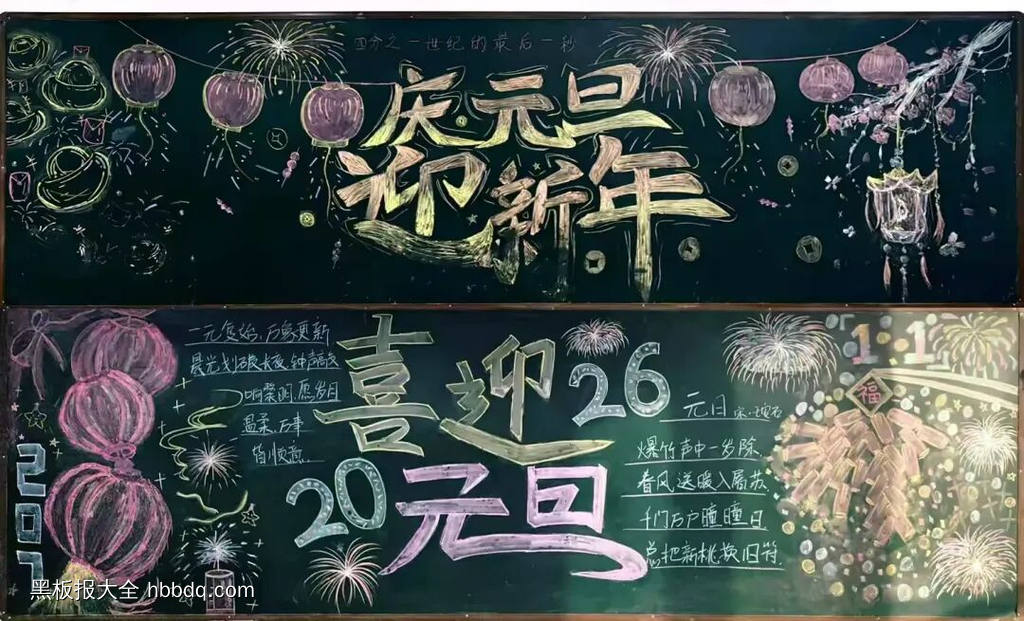 四分之一世纪的最后一秒
庆元旦
迎新年
一元复始,万象更新
晨光划破长夜,钟声高
响黎明,愿岁日
温柔,万事
皆顺意.
喜迎
2026
元旦
11
福
元日
爆竹声中一岁除
春风送暖入屠苏
千门万户瞳瞳日
总把新桃换旧符
黑板报大全 hbbdq.com